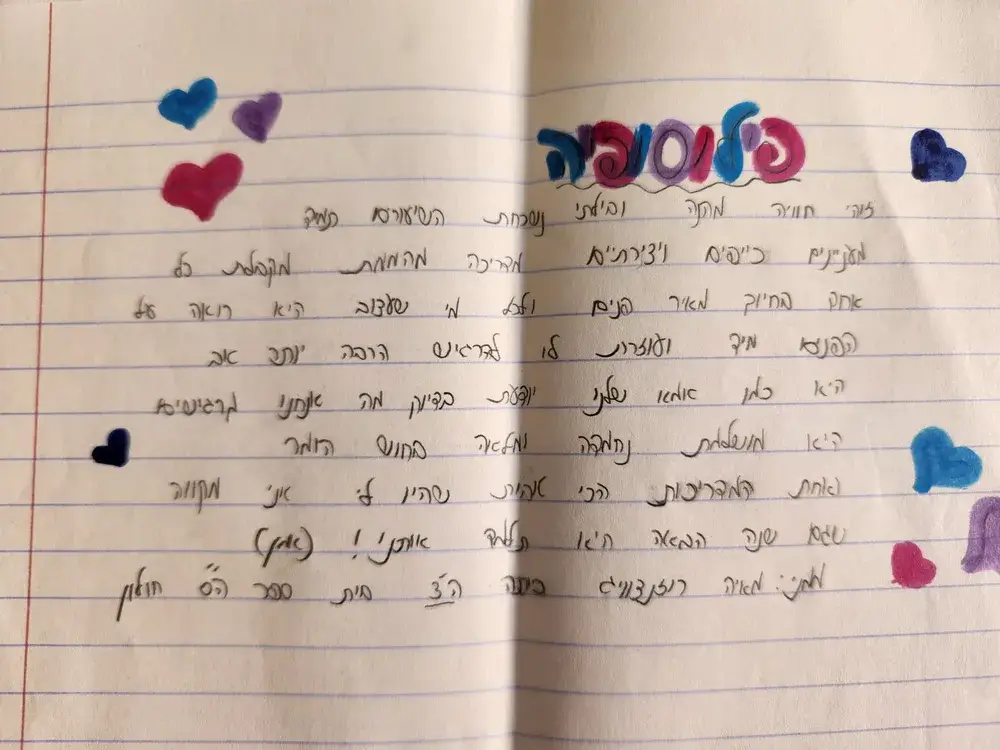 פילוסופיה
זוהי חוויה מהנה ובילתי נשכחת השיעורים תמיד
מעניינים כייפים ויצירתיים מדריכה מהממת מקבלת כל
אחד בחיוך מאיר פנים ולכל מי שעצוב היא רואה על
הפנים מיד ועוזרת לו להרגיש הרבה יותר טוב
היא כמו אמא שלנו יודעת בדיוק מה אנחנו מרגישים
היא מושלמת נחמדה ומלאה בחוש הומר
ואחת המדריכות הכי טובות שהיו לי אני מקווה
שגם שנה הבאה היא תלמד אותנו ! (אמן)
ממני: מאיה רוזנצווייג כיתה ה'2 בית ספר הס חולון